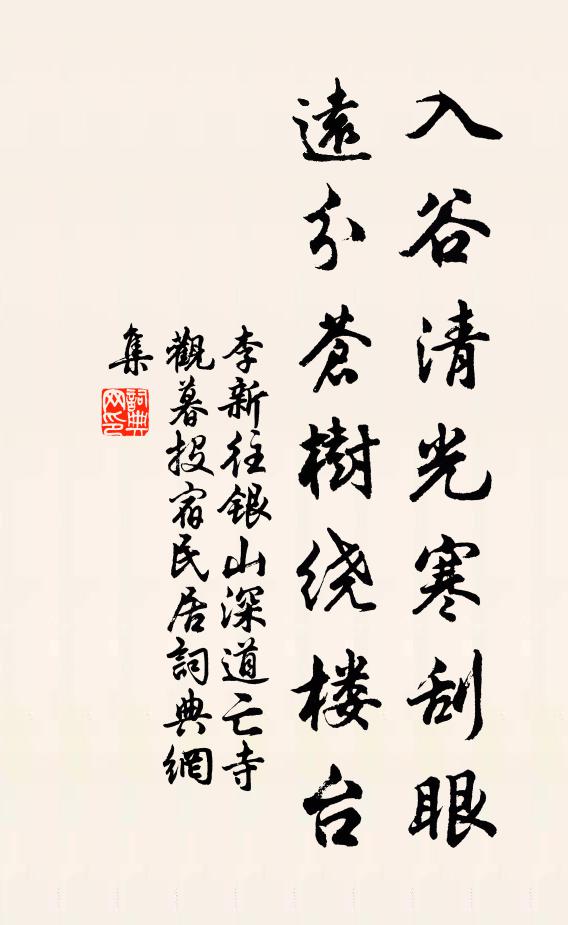 入谷清光寒刮眼
遠分蒼樹绕楼台
李新往銀山深道亡寺
觀暮投宿民居詞典網
集
詞典网印